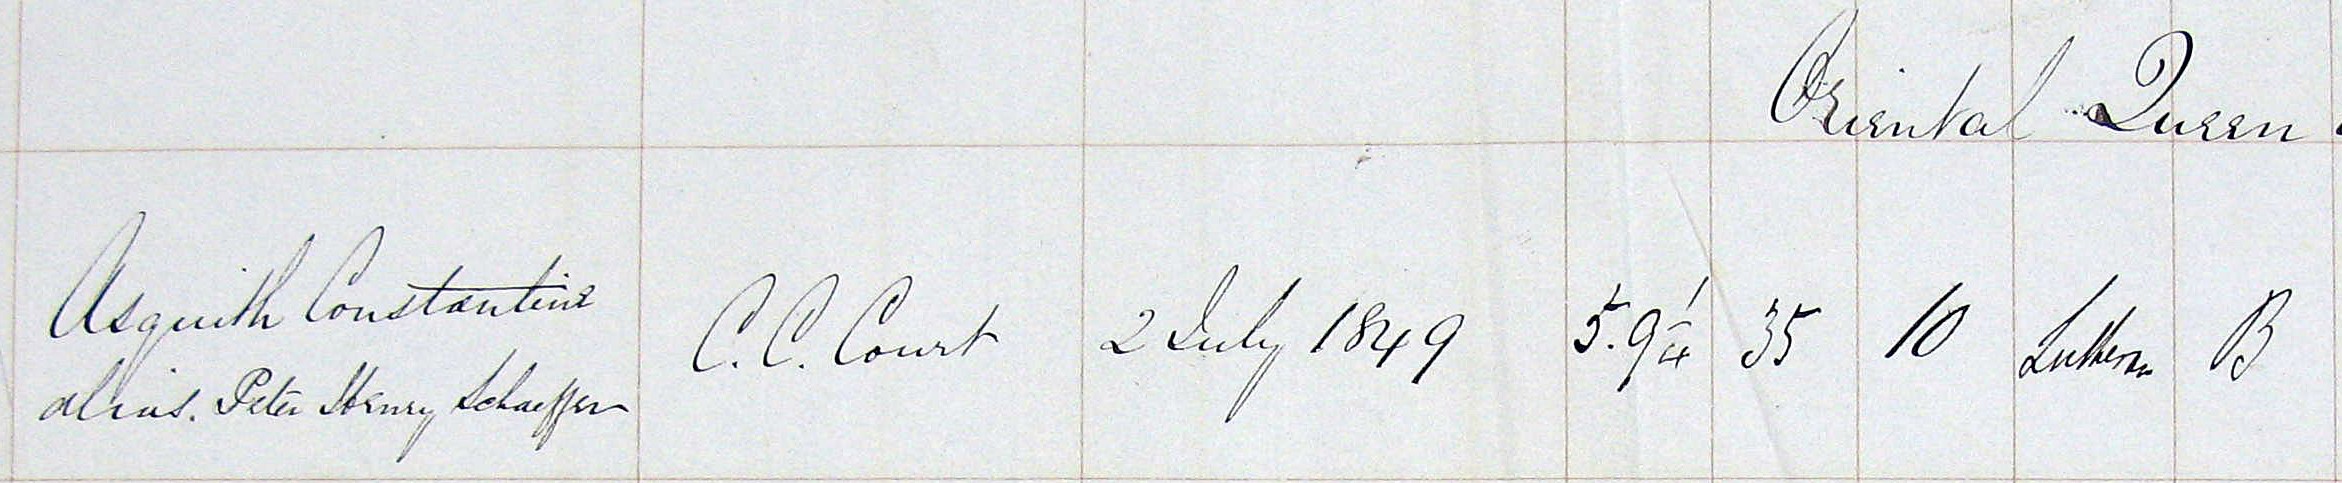 Oriental Queen
Asquith Constantine C. C. Court 2 July 1849 5.9 1/4 35 10 Lutheran B
alias. Peter Henry Schaeffer